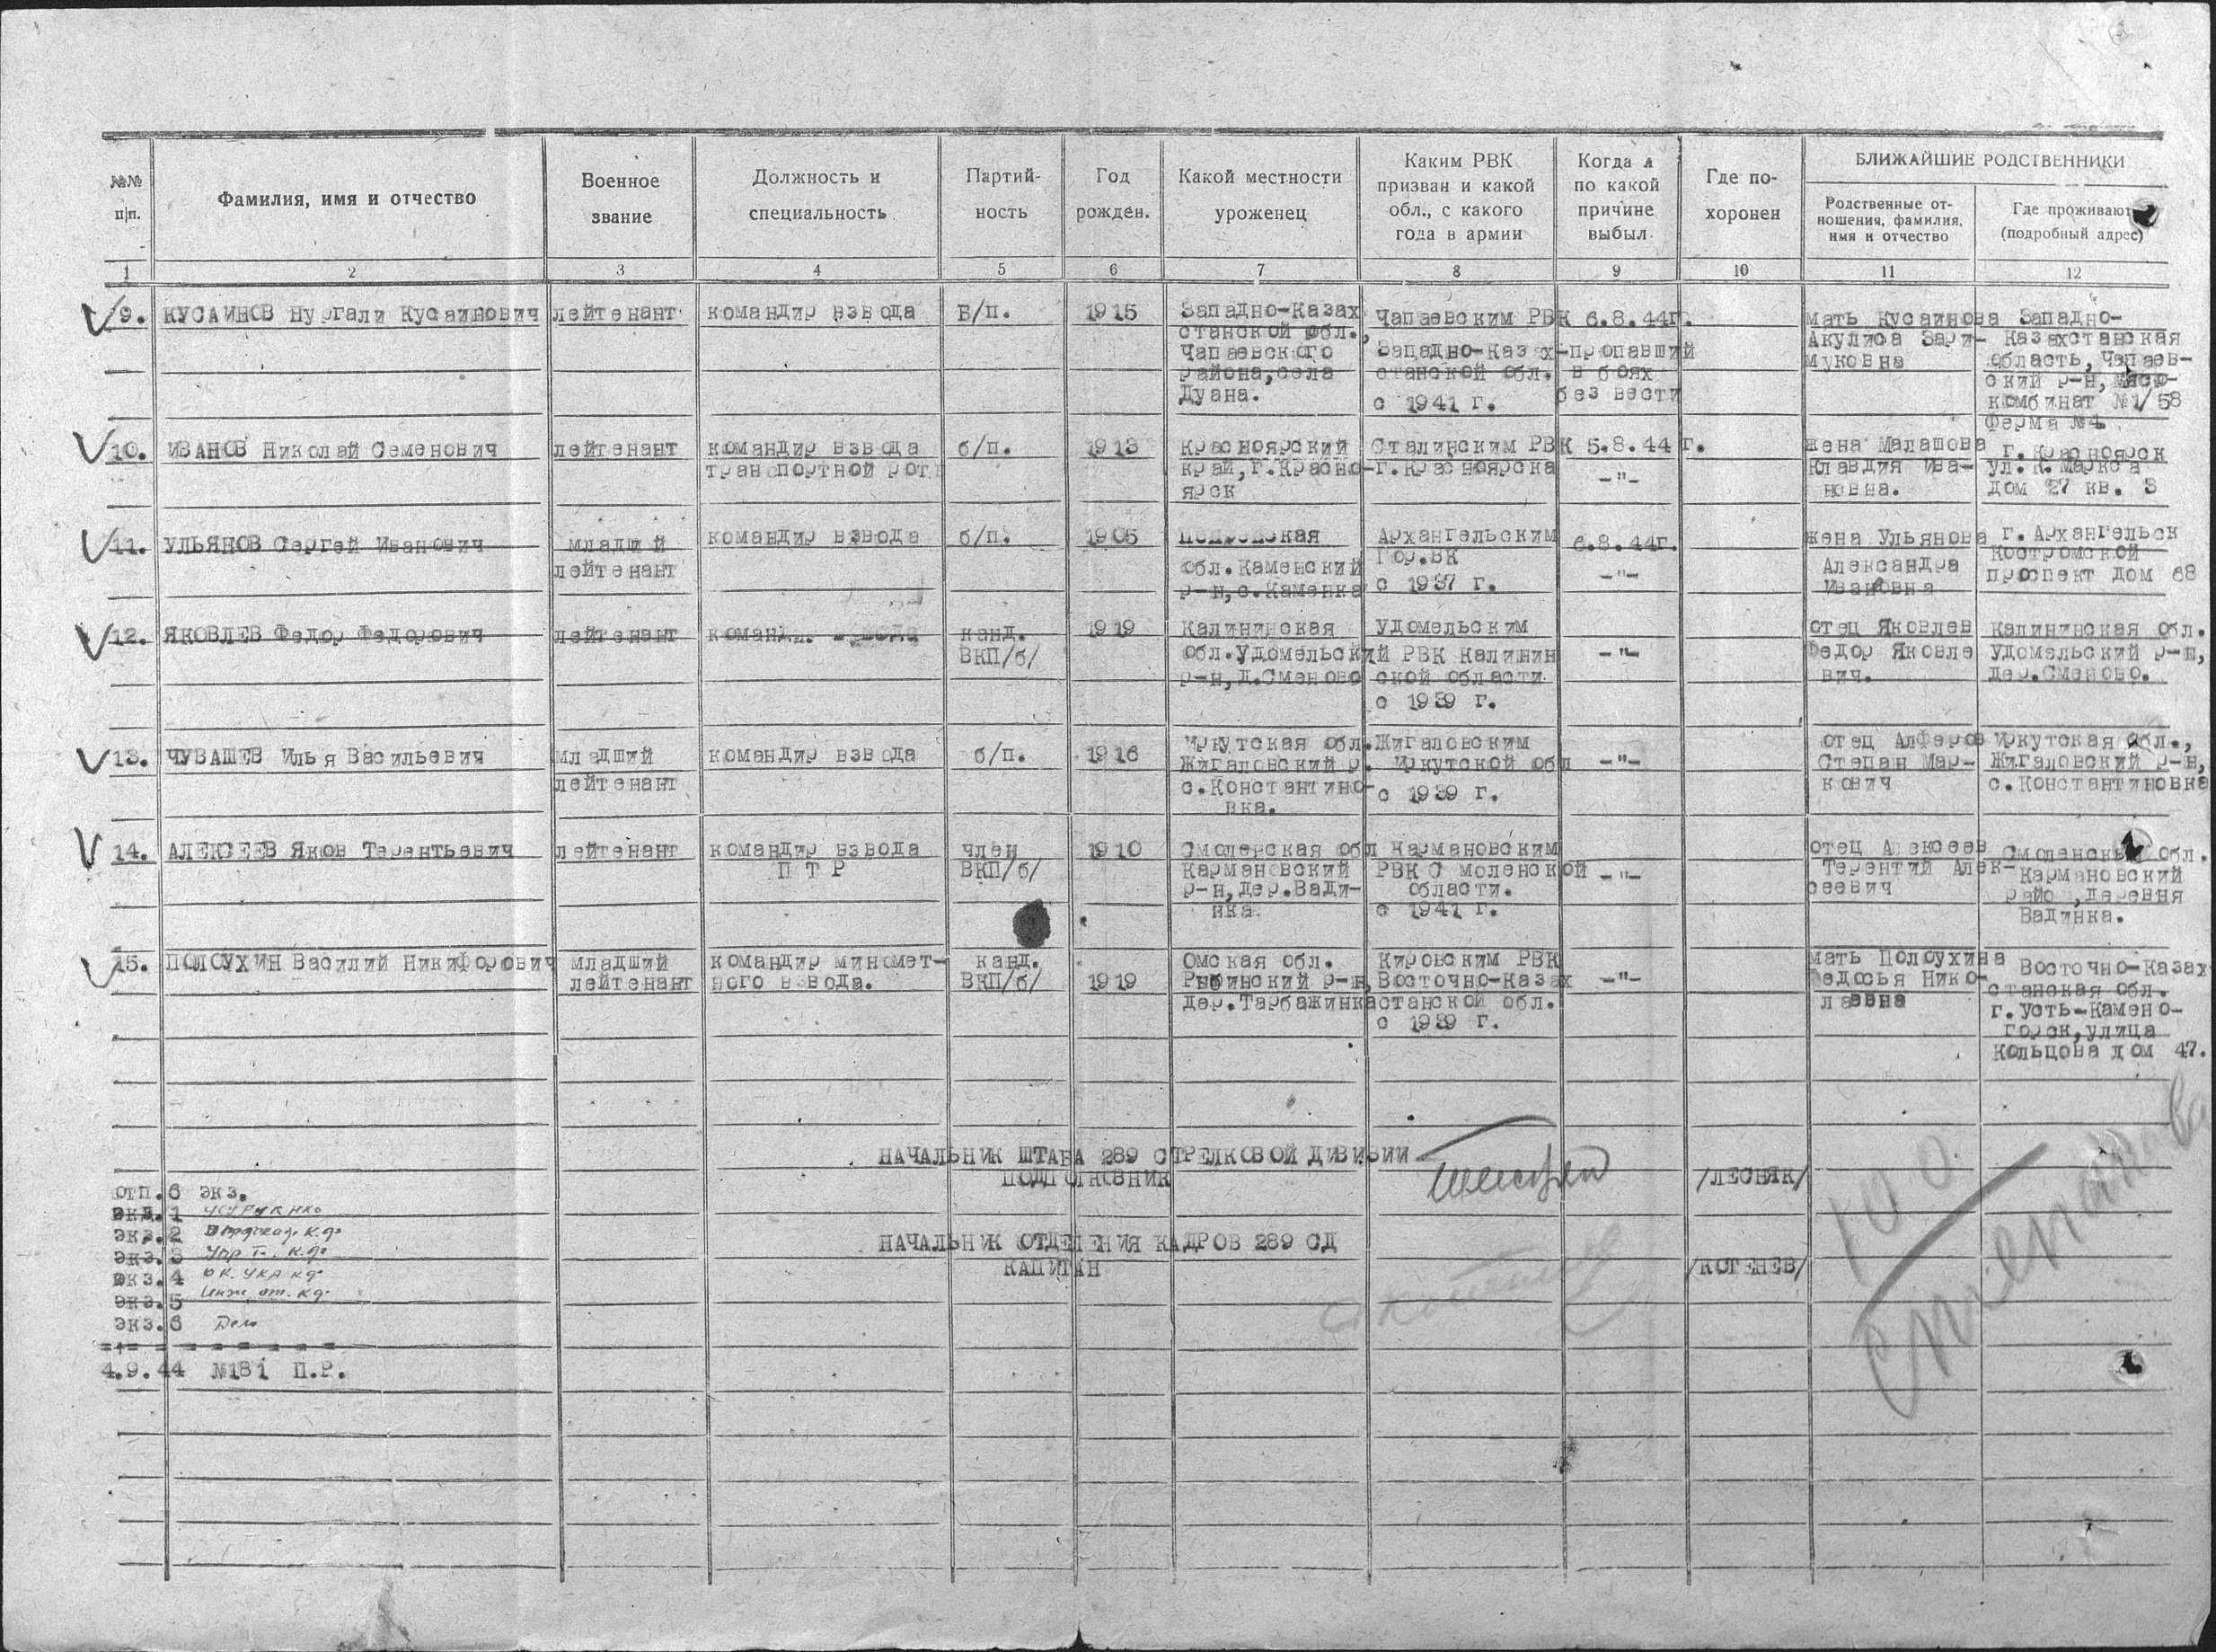 №№ п|п.
Фамилия, имя и отчество
Военное звание
Должность и специальность
Партий-
ность
Год рожден.
Какой местности уроженец
Каким РВК
призван и какой
обл., с какого
года в армии
Когда и
по какой
причине
выбыл
Где по-
хоронен
БЛИЖАЙШИЕ РОДСТВЕННИКИ
Родственные от-
ношения, фамилия,
имя и отчество
Где проживают
(подробный адрес)
1 2 3 4 5 6 7 8 9 10 11 12
9. КУСАИНОВ Нургали Кусаинович
лейтенант
командир взвода
Б/п.
1915
Западно-Казах
станской обл.,
Чапаевского
района, села
Дуана.
Чапаевским РВК
Западно-Казах-
станской обл.
с 1941 г.
6.8.44г.
пропавший
в боях
без вести
мать Кусаинова
Акулиса Зари-
муковна
Западно-
Казахстанская
область, Чапаев-
ский р-н, Мясо-
комбинат №1/58
Ферма №4
10. ИВАНОВ Николай Семенович
лейтенант
командир взвода
транспортной рот
б/п.
1913
Красноярский
край, г.Красно-
ярск
Сталинским РВК
г.Красноярска
5.8.44 г.
-"-
жена Малашова
Клавдия Ива-
новна.
г. Красноярск
ул. К. Маркса
дом 27 кв. 3
11. УЛЬЯНОВ Сергей Иванович
младший
лейтенант
командир взвода
б/п.
1905
обл.Каменский
р-н, с.Каменка
Архангельским
Гор.ВК
с 1937 г.
6.8.44г.
-"-
жена Ульянова
Александра
Ивановна
г. Архангельск
Костромской
проспект дом 68
12. ЯКОВЛЕВ Федор Федорович
лейтенант
команд. взвода
канд.
ВКП/б/
1919
Калининская
обл.Удомельский
р-н, д.Сменово
Удомельским
РВК Калинин
ской области
с 1939 г.
-"-
отец Яковлев
Федор Яковле
вич.
Калининская обл.
Удомельский р-н,
дер.Сменово.
13. ЧУВАШЕВ Илья Васильевич
младший
лейтенант
командир взвода
б/п.
1916
Иркутская обл.
Жигаловский р.
с.Константино-
вка.
Жигаловским
Иркутской обл
с 1939 г.
-"-
отец Алферов
Степан Мар-
кович
Иркутская обл.,
Жигаловский р-н,
с.Константиновка
14. АЛЕКСЕЕВ Яков Терентьевич
лейтенант
командир взвода
П Т Р
член
ВКП/б/
1910
Смоленская обл
Кармановский
р-н, дер.Вади-
нка.
Кармановским
РВК Смоленской
области.
с 1941 г.
-"-
отец Алексеев
Терентий Алек-
сеевич
Смоленская обл.
Кармановский
райо ,деревня
Вадинка.
15. ПОЛОУХИН Василий Никифорович
младший
лейтенант
командир миномет-
ного взвода.
канд.
ВКП/б/
1919
Омская обл.
Рыбинский р-н,
дер.Тарбажинка
Кировским РВК
Восточно-Казах
станской обл.
с 1939 г.
-"-
мать Полоухина
Федосья Нико-
лаевна
Восточно-Казах
станская обл.
г.Усть-Камено-
горск, улица
Кольцова дом 47.
НАЧАЛЬНИК ШТАБА 289 СТРЕЛКОВОЙ ДИВИЗИИ
ПОДПОЛКОВНИК
/ЛЕСНЯК/
НАЧАЛЬНИК ОТДЕЛЕНИЯ КАДРОВ 289 СД
КАПИТАН
/КОТЕНЕВ/
отп.6 экз.
экз.1
экз.2
экз.3
экз.4
экз.5
экз.6 Дело
4.9.44 №181 П.Р.